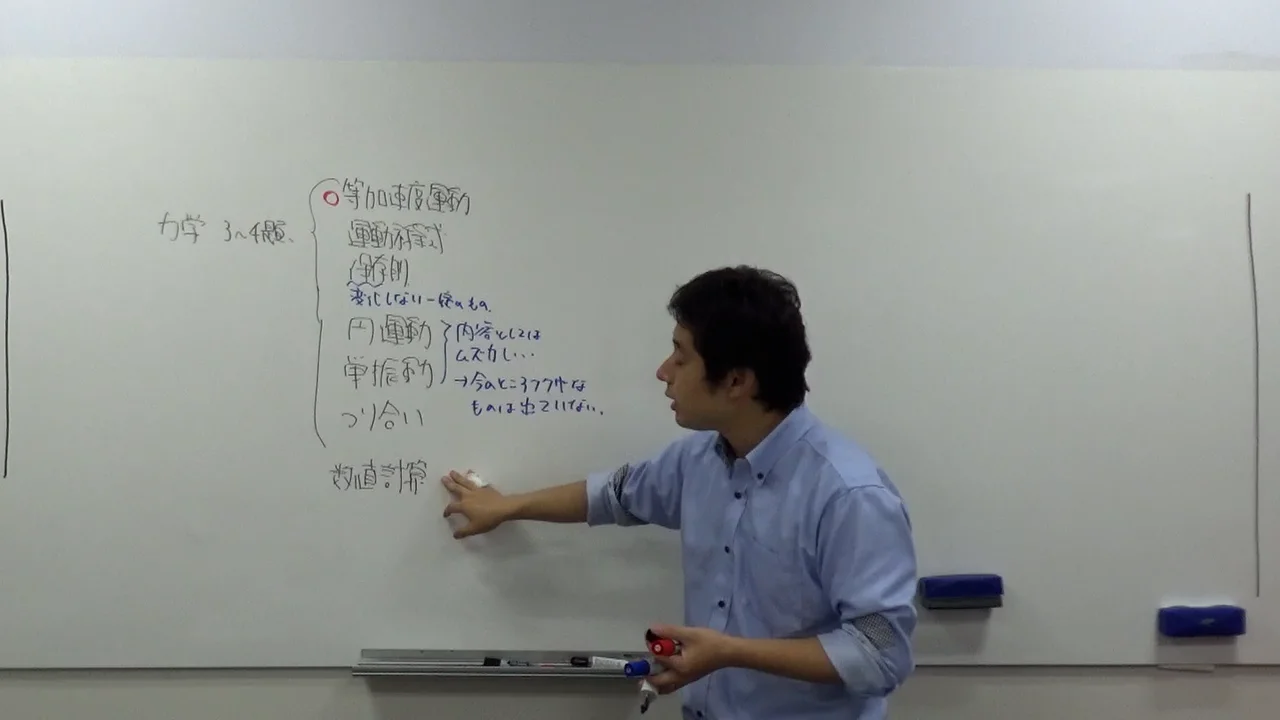 力学 3〜4題、
○等加速度運動
運動方程式
保存則
変化しない一定のもの。
円運動
単振動
内容としては
ムズカしい…
→今のところフクザツな
ものは出ていない。
つり合い
数値計算